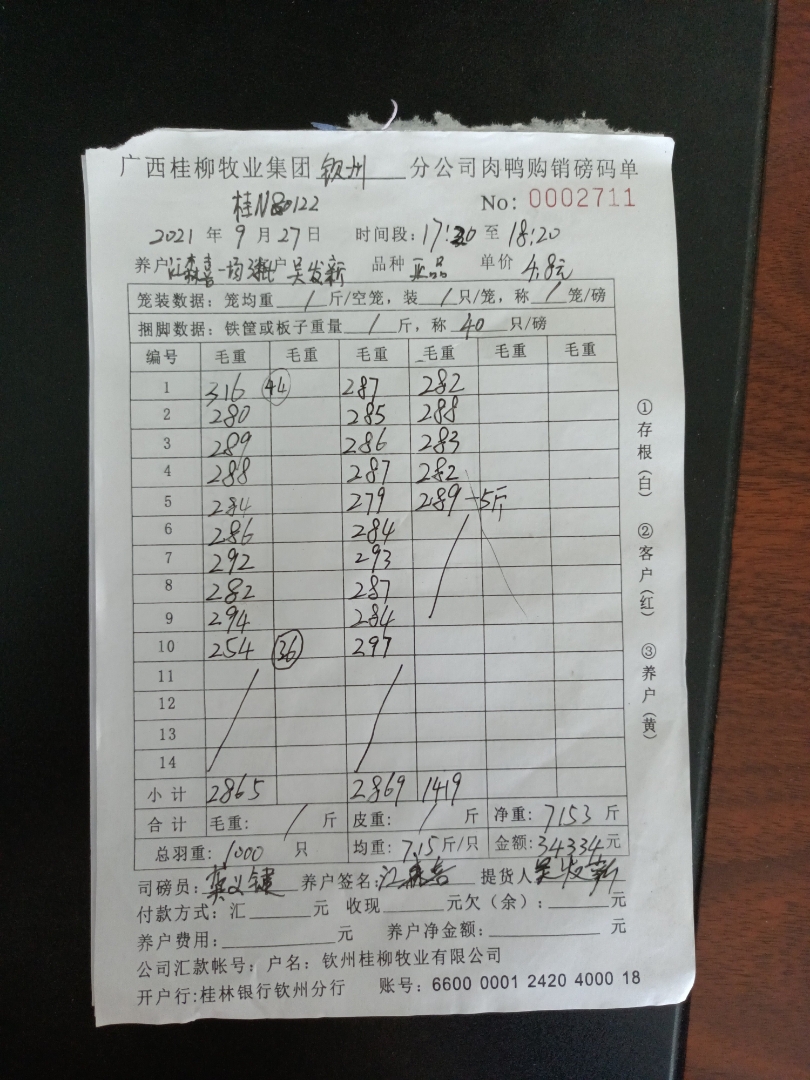 广西桂柳牧业集团 钦州 分公司肉鸭购销磅码单
桂N80122 No: 0002711
2021 年 9 月 27 日 时间段: 17:20 至 18:20
养户 江森喜一场 客户 吴发新 品种 正品 单价 4.8元
笼装数据: 笼均重 / 斤/空笼, 装 / 只/笼, 称 / 笼/磅
捆脚数据: 铁筐或板子重量 / 斤, 称 40 只/磅
编号 毛重 毛重 毛重 毛重 毛重 毛重
1 316 44 287 282
2 280 285 288
3 289 286 283
4 288 287 282
5 284 279 289 -5斤
6 286 284
7 292 293
8 282 287
9 294 284
10 254 36 297
11
12
13
14
小计 2865 2869 1419
合计 毛重: / 斤 皮重: / 斤 净重: 7153 斤
总羽重: 1000 只 均重: 7.15 斤/只 金额: 34334 元
司磅员: 养户签名: 江森喜 提货人 吴发新
付款方式: 汇 元 收现 元欠(余): 元
养户费用: 元 养户净金额: 元
公司汇款帐号: 户名: 钦州桂柳牧业有限公司
开户行:桂林银行钦州分行 账号: 6600 0001 2420 4000 18
①存根(白) ②客户(红) ③养户(黄)